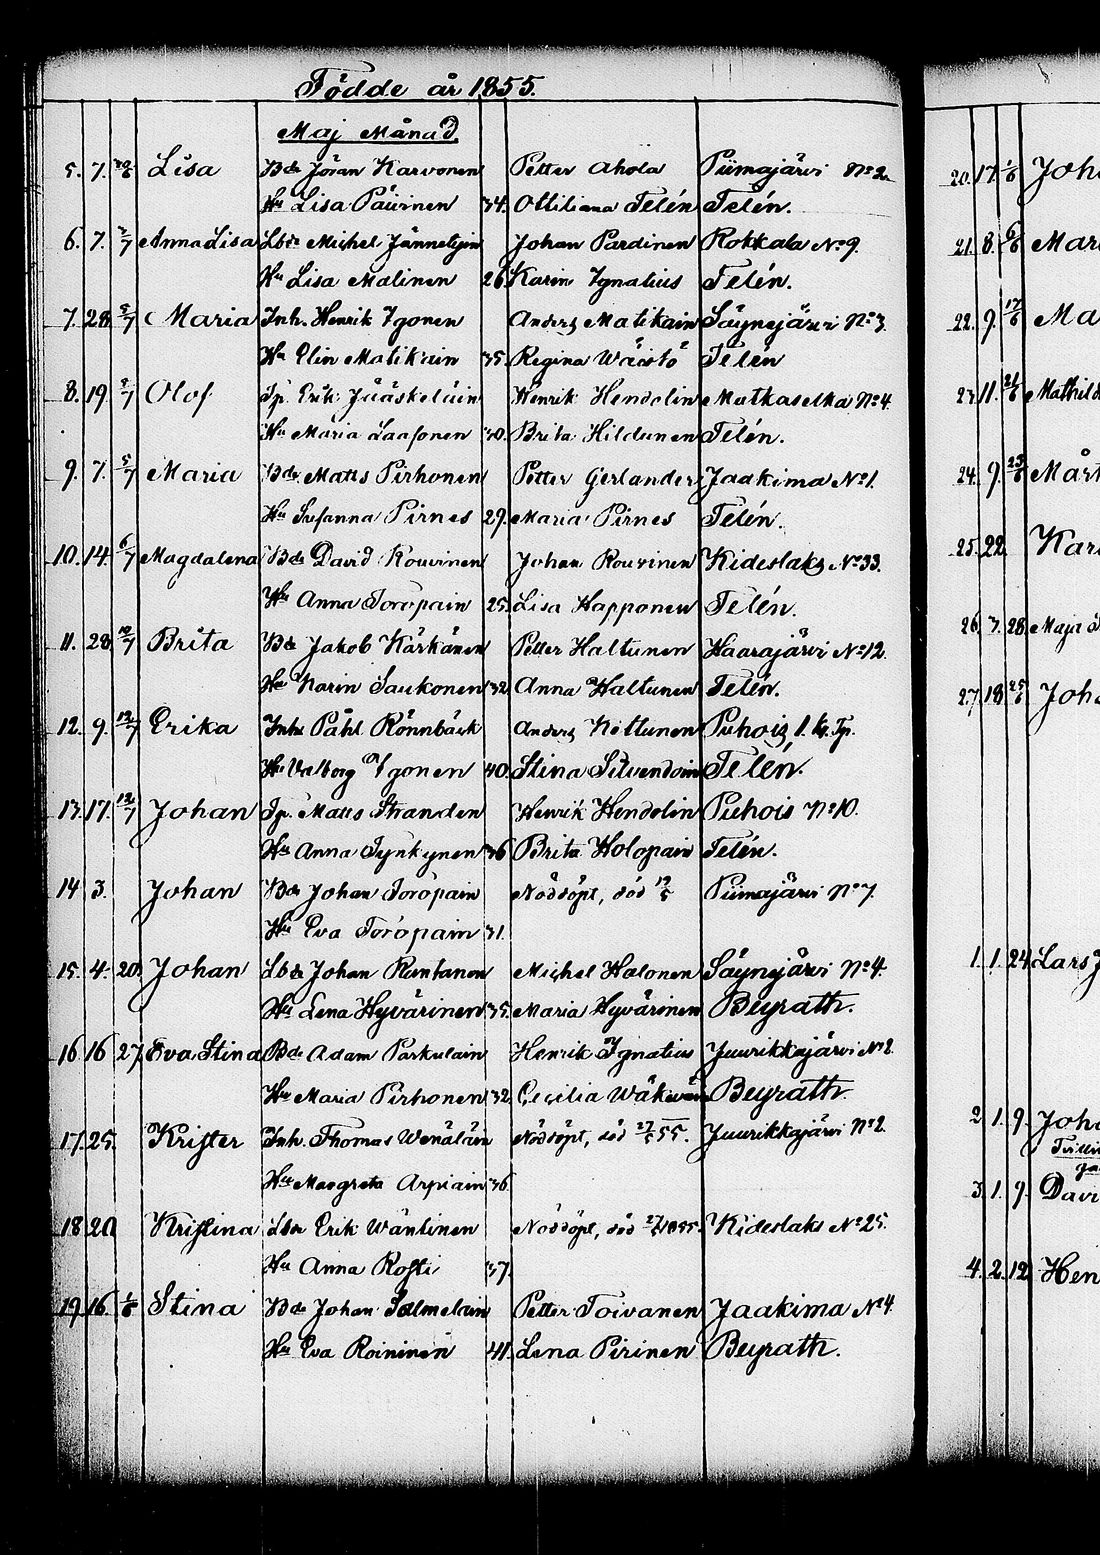 Födde år 1855.
Maj Månad.
5. 7. Lisa Bde Jöran Karvonen Petter Ahola Piimajärvi No 2.
Hu Lisa Päivinen 34. Ottiliana Telén Telén.
6. 7. 2/7 Anna Lisa Lbde Michel Jännetyin Johan Pardinen Rokkala No 9.
Hu Lisa Malinen 26 Karin Ignatius Telén.
7. 28 5/7 Maria Inh. Henrik Igonen Anders Matikain Säynejärvi No 3.
Hu Elin Matikain 35. Regina Telén
8. 19. Olof Tp. Erik Jääskeläin Henrik Hendolin Matkaselka No 4.
Hu Maria Laasonen 30. Brita Hildunen Telén.
9. 7. 5/7 Maria Bde Matts Pirhonen Petter Gerlander Jaakima No 1.
Hu Susanna Pirnes 29. Maria Pirnes Telén.
10. 14. 6/7 Magdalena Bde David Rouvinen Johan Rouvinen Kideslaks No 33.
Hu Anna Toropain 25. Lisa Happonen Telén.
11. 28 10/7 Brita Bde Jakob Kärkänen Petter Haltunen Haarajärvi No 12.
Hu Karin Saukonen 32 Anna Haltunen Telén.
12. 9. 12/7 Erika Inh. Påhl Rönnbäck Anders Nottunen Puhois l. k. Tp.
Hu Valborg Igonen 40. Stina Telén.
13. 17. 12/7 Johan Tp. Matts Stranden Henrik Hendolin Puhois No 10.
Hu Anna Tynkynen 36 Brita Holopain Telén.
14 3. Johan Bde Johan Toropain Nöddöpt, död 19/5 Piimajärvi No 7.
Hu Eva Toropain 31.
15. 4. 20. Johan Lbde Johan Rantanen Michel Halonen Säynejärvi No 4.
Hu Lena Hyvärinen 35. Maria Hyvärinen Beyrath.
16 16 27 Eva Stina Bde Adam Parkulain Henrik Ignatius Juurikkajärvi No 2.
Hu Maria Pirhonen 32. Cecilia Beyrath.
17. 25. Krister Inh. Thomas Wenäläin Nöddöpt, död 27/5 55. Juurikkajärvi No 2.
Hu Margreta Arpiain 36
18 20 Kristina Lbr Erik Wäntinen Nöddöpt, död Kideslaks No 25.
Hu Anna Rosti 37.
19. 16. 1/8 Stina Bde Johan Salmelain Petter Toivanen Jaakima No 4.
Hu Eva Roininen 41. Lena Pirinen Beyrath.
20. 17
21. 8.
22. 9. 17/6
23. 11.
24. 9.
25. 22.
26. 7. 28 Maja
27. 18
1. 1. 24 Lars
2. 1. 9.
3. 1. 9.
4. 2. 12